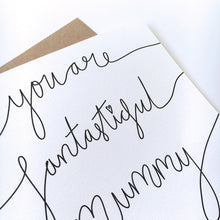 you are
fantastiful
mummy